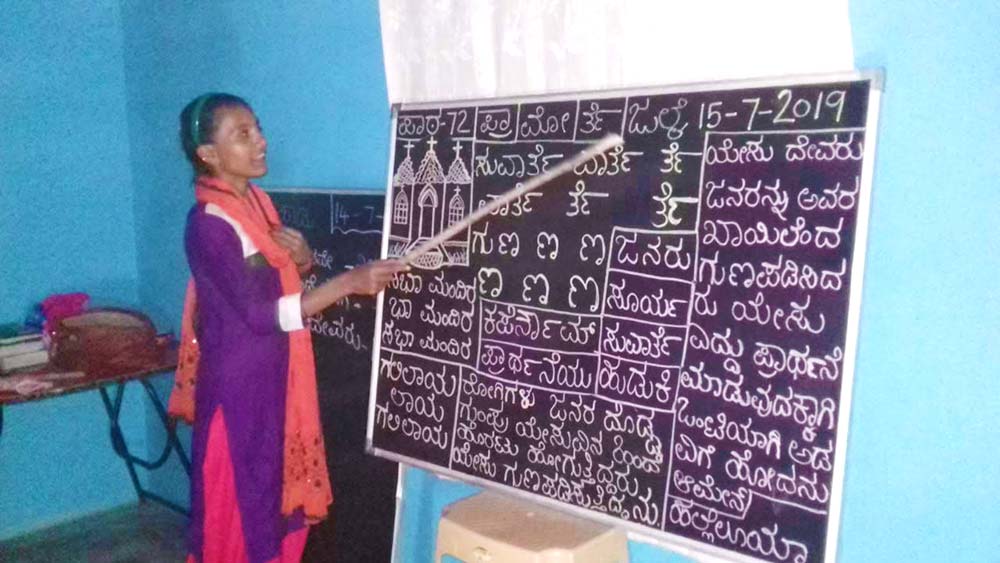 ಪಾಠ-72 ಪ್ರಾ ಮೋ ರ್ತೆ ಜುಲೈ 15-7-2019
ಸುವಾರ್ತೆ ವಾರ್ತೆ ರ್ತೆ
ವಾರ್ತೆ ರ್ತೆ ರ್ತೆ
ಗುಣ ಣ ಣ
ಣ ಣ ಣ
ಸಭಾ ಮಂದಿರ
ಭಾ ಮಂದಿರ
ಸಭಾ ಮಂದಿರ
ಕಪೆರ್ನೌಮ್
ಪ್ರಾರ್ಥನೆಯು
ಜನರು
ಸೂರ್ಯ
ಸುವಾರ್ತೆ
ಹುಡುಕಿ
ಗಲಿಲಾಯ
ಲಿಲಾಯ
ಗಲಿಲಾಯ
ರೋಗಿಗಳು ಜನರ ದೊಡ್ಡ
ಗುಂಪು ಯೇಸುವಿನ ಹಿಂದೆ
ಹೊರಟು ಹೋಗುತ್ತಿದ್ದರು
ಯೇಸು ಗುಣಪಡಿಸುತ್ತಿದ್ದನು.
ಯೇಸು ದೇವರು
ಜನರನ್ನು ಅವರ
ಖಾಯಿಲೆಂದ
ಗುಣಪಡಿಸಿದ
ರು ಯೇಸು
ಎದ್ದು ಪ್ರಾರ್ಥನೆ
ಮಾಡುವುದಕ್ಕಾಗಿ
ಒಂಟಿಯಾಗಿ ಅಡ
ವಿಗೆ ಹೋದನು
ಆಮೇನ್
ಹಲ್ಲೆಲೂಯಾ
14-7-
ದೇವರು